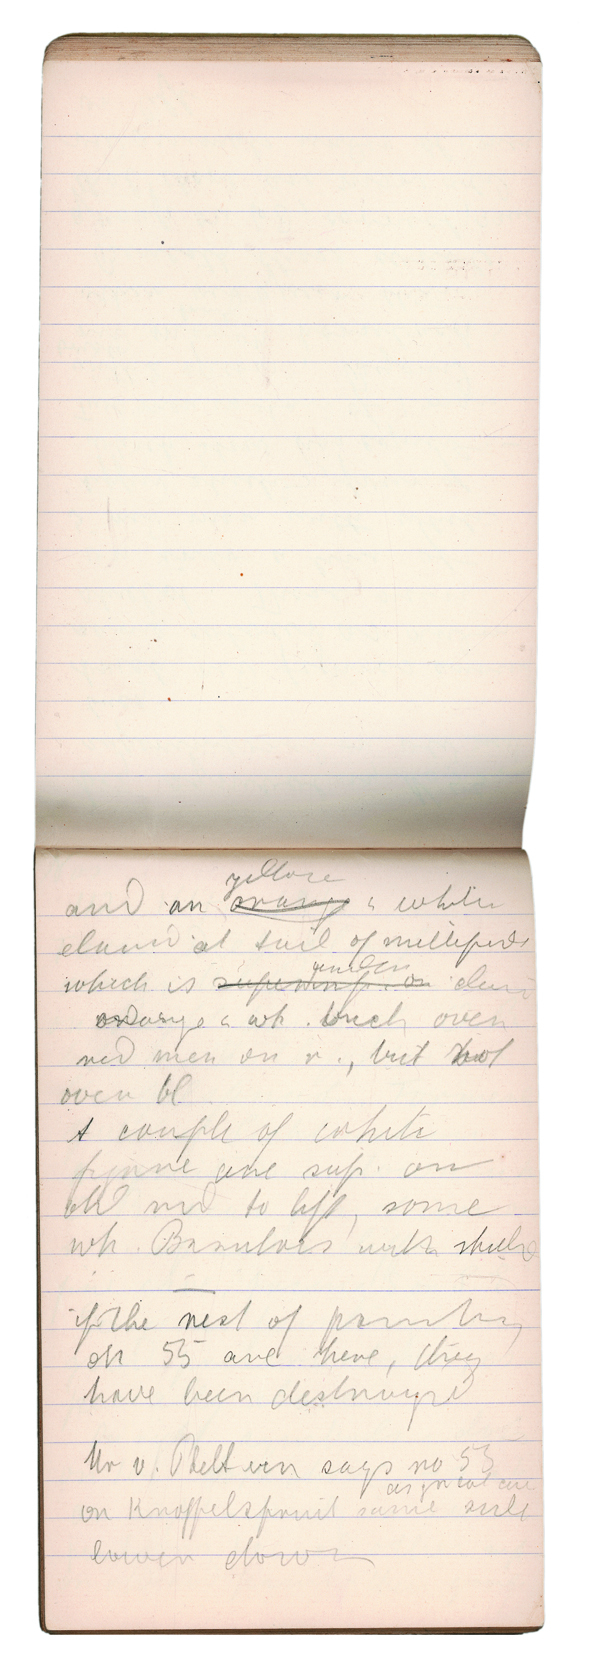 yellow
and an orange & white
eland at tail of millipede
under
which is superimp. on eland
orange & wh. buck over
red men on r., but not
over bl
A couple of white
figures are sup. on
old red to left, some
wh. Basutos with shields
if the rest of painting
on 55 are here, they
have been destroyed
Mr v. says no 55
as great cave
on Knoffelspruit same side
lower down